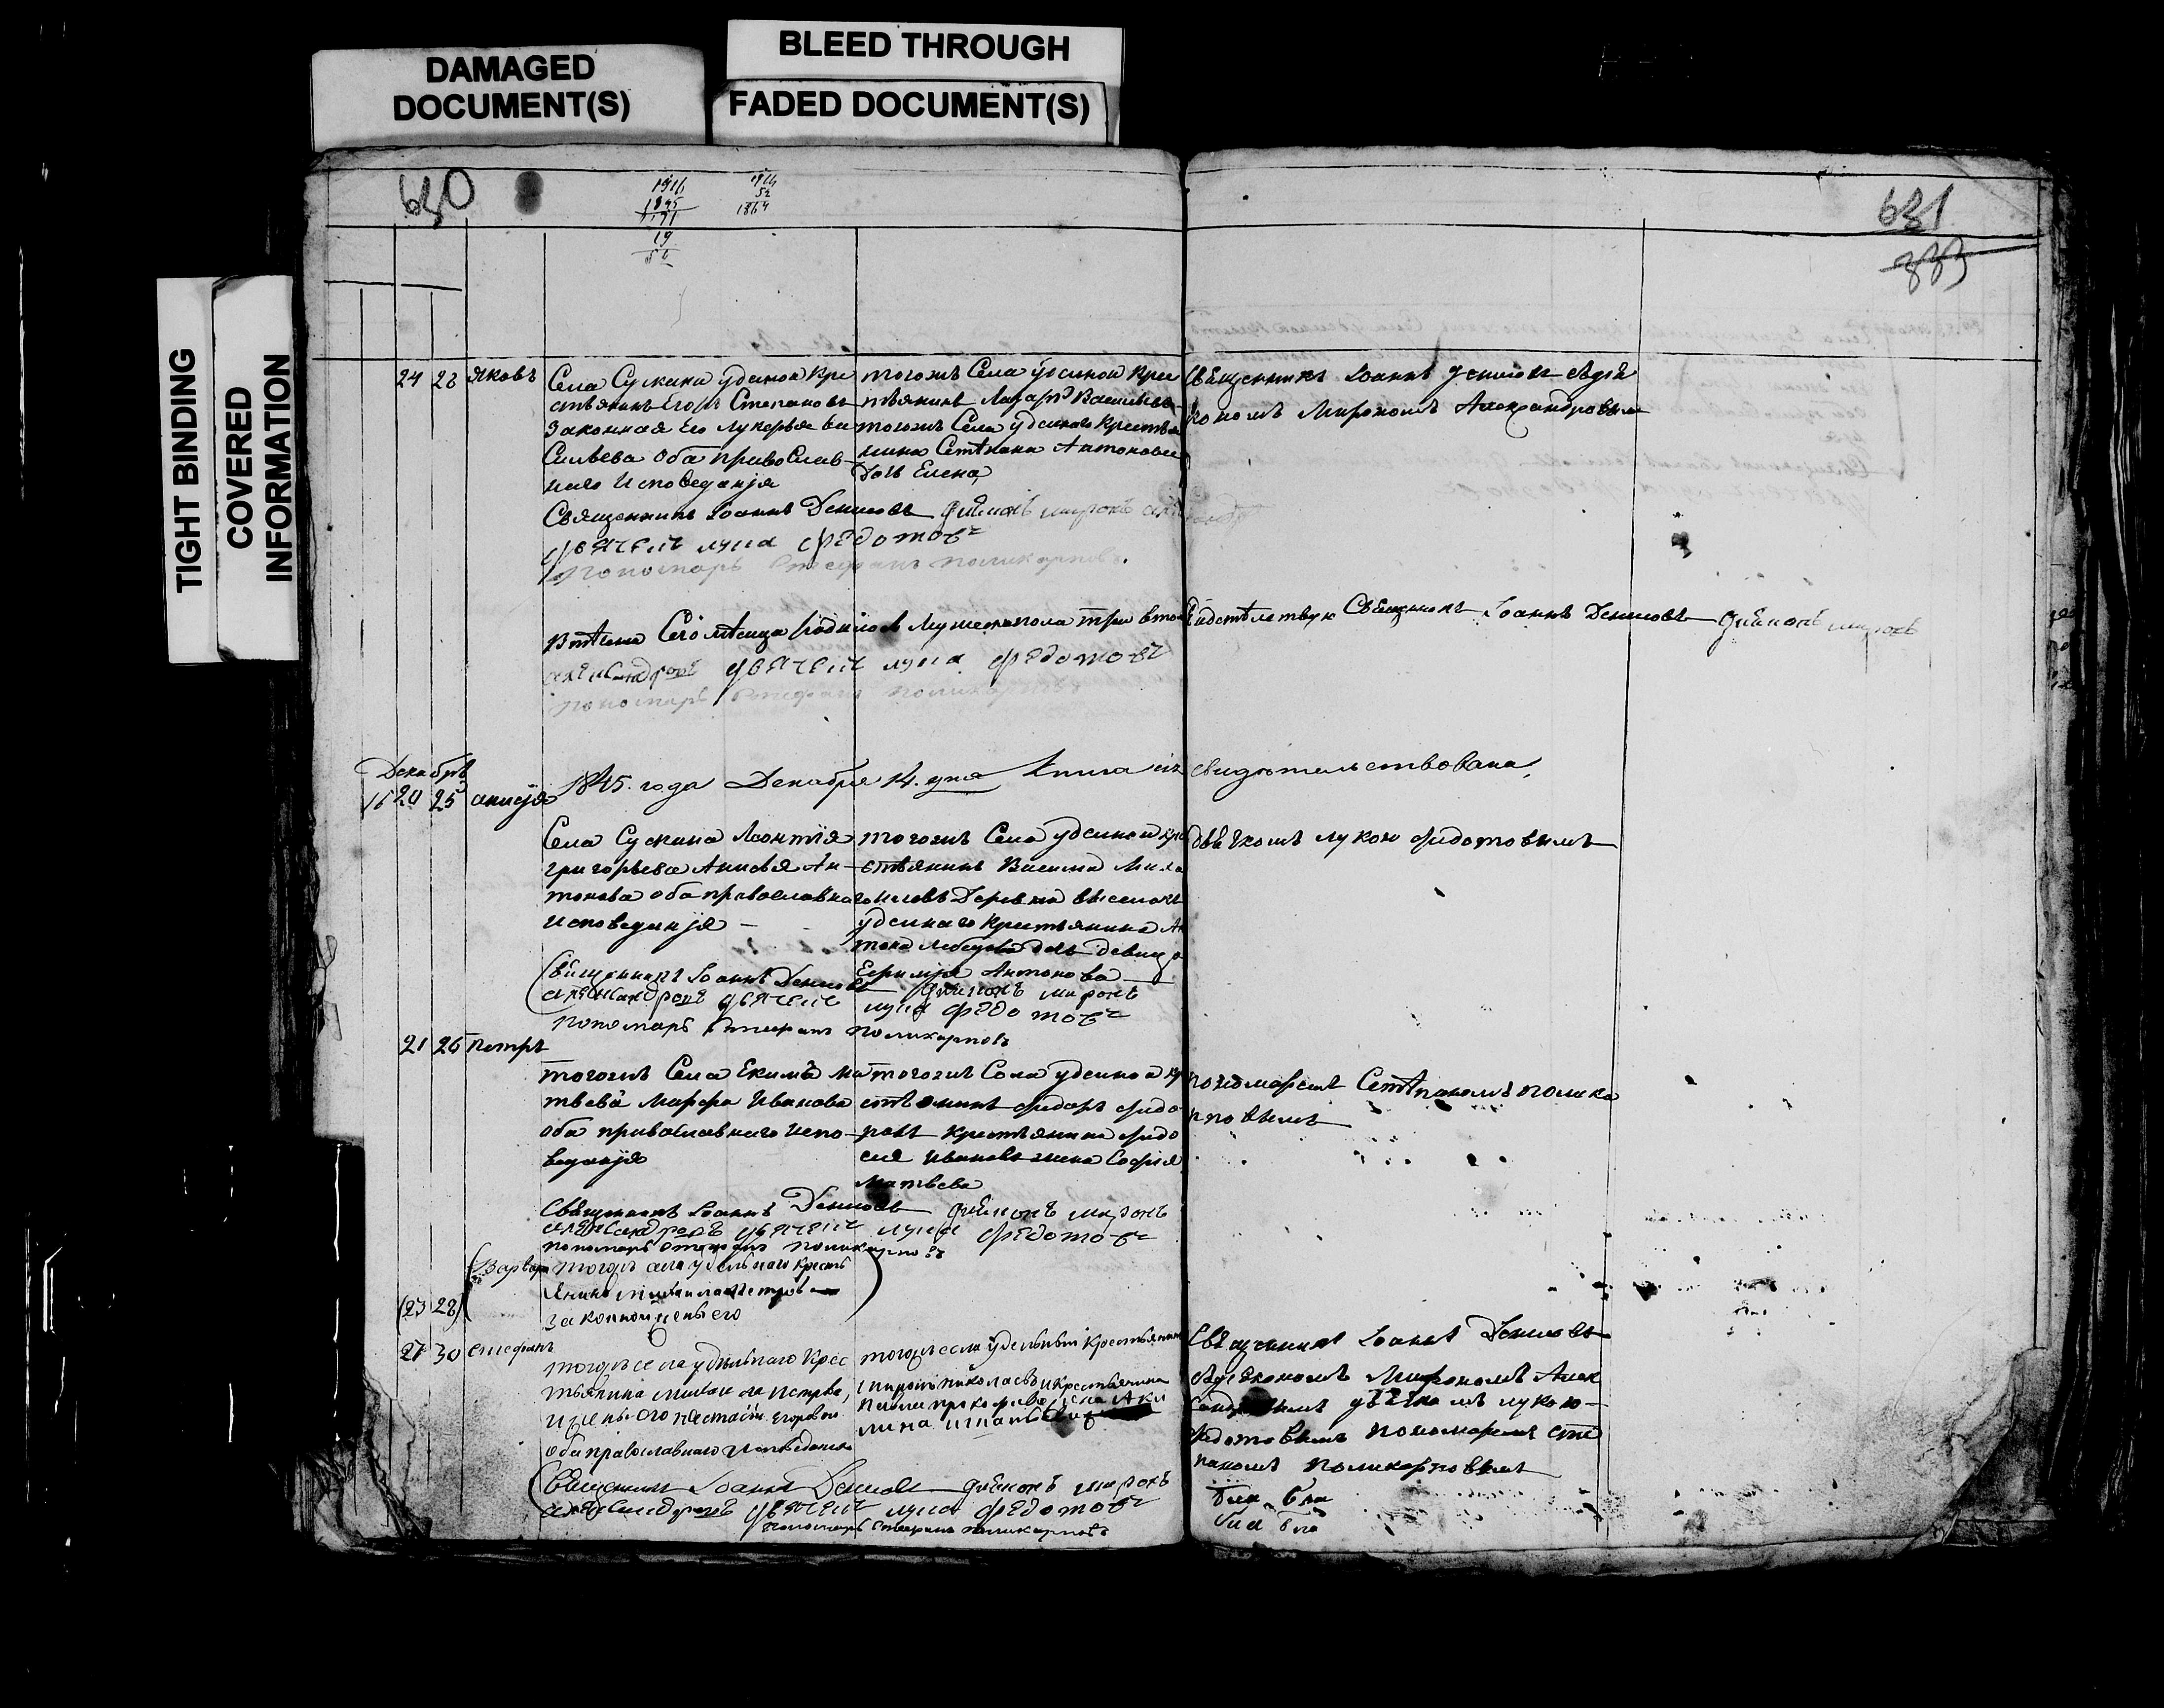 DAMAGED
DOCUMENT(S)
BLEED THROUGH
FADED DOCUMENT(S)
TIGHT BINDING
COVERED
INFORMATION
630
1916
1845
1916
52
1864
19
631
333
24 28 Яковъ
Села Сускана удельной Кре
стьянинъ Егоръ Степановъ
Законная Его Лукерья Ва
сильева Оба православ
наго Исповеданія
тогожъ Села удельной Крес
тьянинъ Лазарь Васильевъ
тогожъ Села удельнаго Крестья
нина Степана Антонова
Дочь Елена
Священникъ Іоаннъ Денисовъ съдія
кономъ Мирономъ Александровымъ
Священникъ Іоаннъ Денисовъ діаконъ миронъ
дьячекъ лука федотовъ
пономарь Стефанъ поликарповъ
Втечении Сего месяца родилось Мужеска пола три в том
свидетельствую Священникъ Іоаннъ Денисовъ діаконъ миронъ
александровъ дьячекъ лука федотовъ
пономарь Стефанъ поликарповъ
1845. года Декабря 14. дня Книга сія свидетельствована
Декабрь
16 20 25 анисья
Села Сускана Леонтія
григорьева Анисья Ан-
тонова оба православнаго
исповеданія
тогожъ Села удельной кре
стьянинъ Василий Миха
иловъ Деревни выселокъ
удельнаго Крестьянина Ан
тона Лебедева дочь девица
Ефимія Антонова
дьячкомъ лукою федотовымъ
Священникъ Іоаннъ Денисовъ діаконъ миронъ
александровъ дьячекъ лука федотовъ
пономарь Стефанъ поликарповъ
21 26 петръ
тогожъ Села Екимъ Ма
твевъ Марфа Иванова
оба православнаго испо
веданія
тогожъ Села удельной кр
стьянинъ федоръ федо
ровъ крестьянина федо
сея Иванова жена Софія
Матвева
пономаремъ Степаномъ полика
рповымъ
Священникъ Іоаннъ Денисовъ діаконъ миронъ
александровъ дьячекъ лука федотовъ
пономарь Стефанъ поликарповъ
(23 28)
Варвара
тогожъ села удельнаго крест
янина михаила петрова
законной жены его
27 30 стефанъ
тогожъ села удельнаго Крес
тьянина михаила петрова,
и жены его настасіи егоровой
оба православнаго исповеданія
тогожъ села удельный Крестьянинъ
спиронъ николаевъ и крестьянина
прокофиева жена Аку
лина игнатьева
Священникъ Іоаннъ Денисовъ
съдіякономъ Мирономъ Алек
сандровымъ дьячкомъ лукою
федотовымъ пономаремъ сте
паномъ поликарповымъ
Священникъ Іоаннъ Денисовъ діаконъ миронъ
александровъ дьячекъ лука федотовъ
пономарь стефанъ поликарповъ